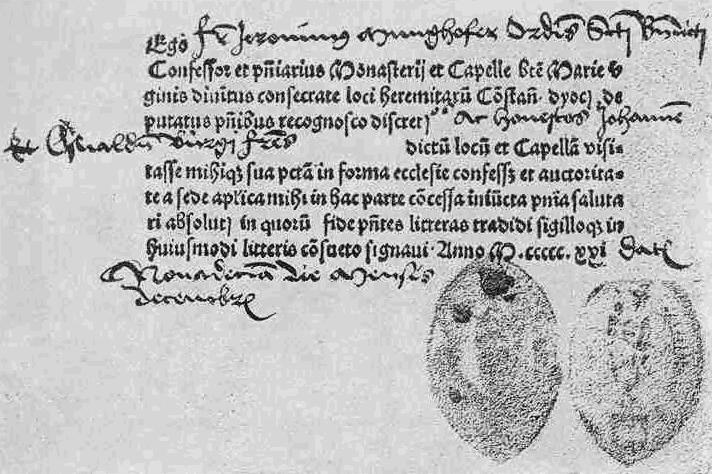 Ego fr̄ Jeronimus Munghofer Ordīs Sctī Bn̄dicti
Confessor et pn̄iarius Monasterij et Capelle btē Marie v
ginis diuītus consecrate loci heremitarū Cōstan̄ dyoc̄ de
putatus pn̄ibus recognosco discret os Ac honestos Johannē
Et Osualdū Burgi frēs dictū locū et Capellā visi-
tasse mihiqꝫ sua pctā in forma ecclesie confessꝫ et auctorita-
te a sede aplica mihi in hac parte cōcessa iniūcta pn̄ia saluta
ri absolutꝫ in quorū fide pn̄tes litteras tradidi sigilloqꝫ in
huiusmodi litteris cōsueto signaui Anno M.ccccc.xxi Datꝫ
Nonadecima die Mensis
decembrꝫ